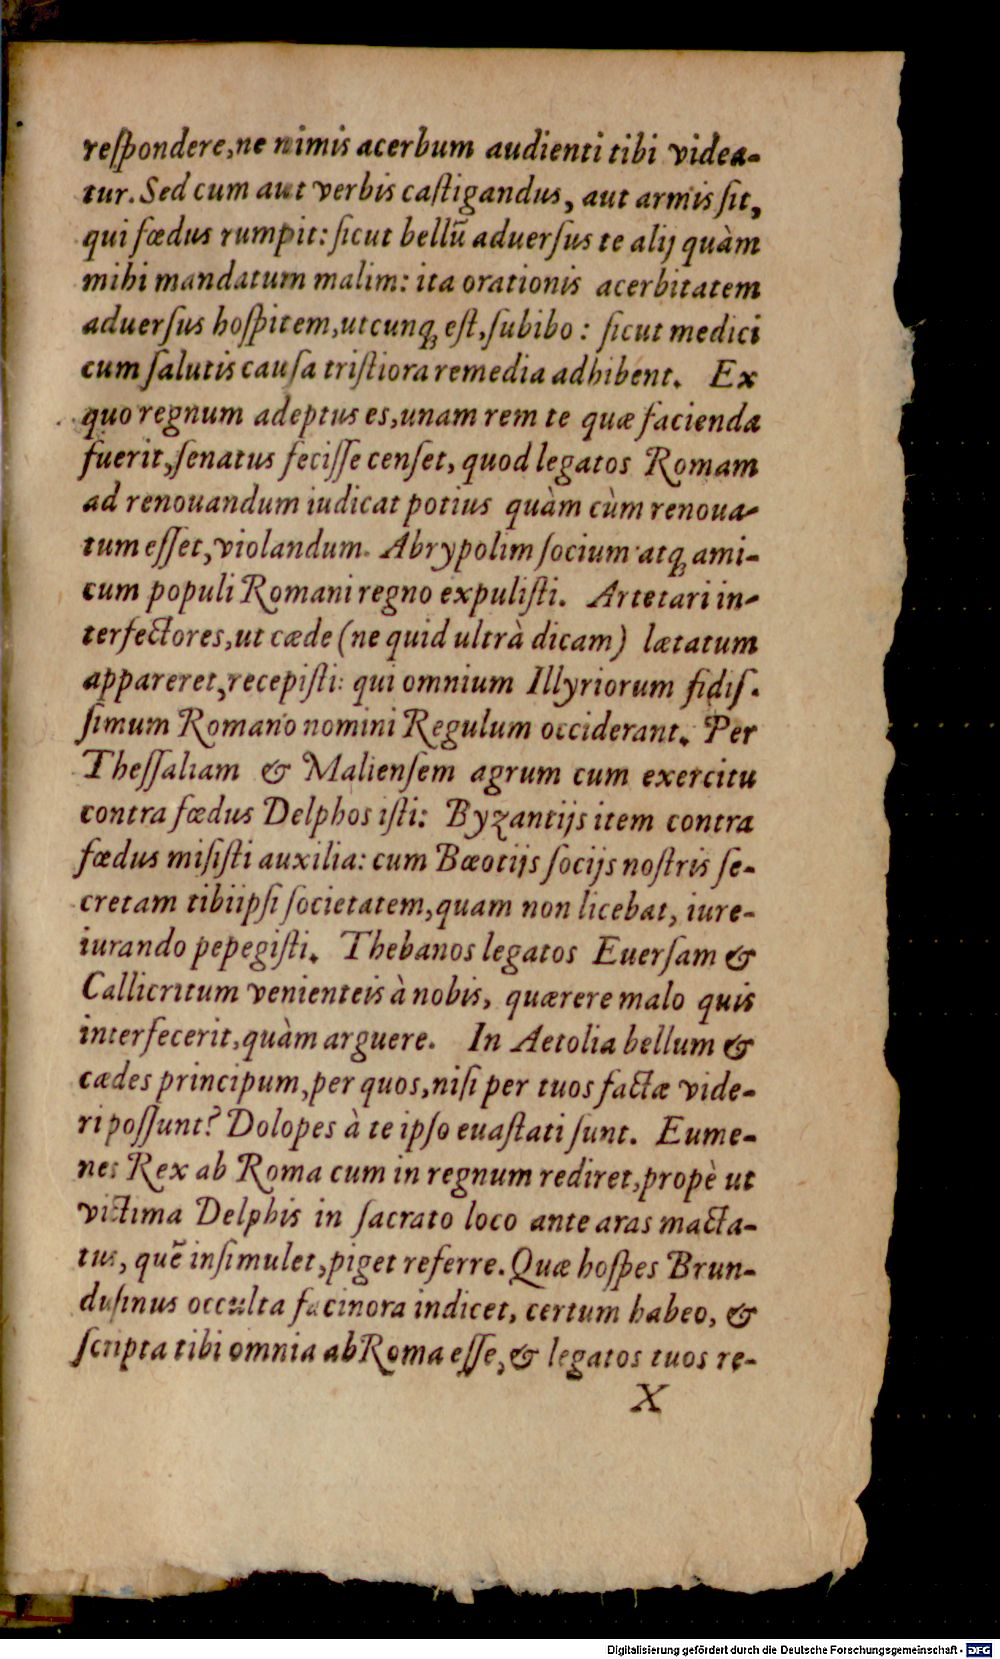 reſpondere,ne nimis acerbum audienti tibi videa-
tur. Sed cum aut verbis caſtigandus, aut armis ſit,
qui fœdus rumpit: ſicut bellũ aduerſus te alij quàm
mihi mandatum malim: ita orationis acerbitatem
aduerſus hoſpitem,utcunq; eſt,ſubibo: ſicut medici
cum ſalutis cauſa triſtiora remedia adhibent. Ex
quo regnum adeptus es,unam rem te quæ facienda
fuerit,ſenatus feciſſe cenſet, quod legatos Romam
ad renouandum iudicat potius quàm cùm renoua-
tum eſſet,violandum. Abrypolim ſocium atq; ami-
cum populi Romani regno expuliſti. Artetari in-
terfectores,ut cæde (ne quid ultrà dicam) lætatum
appareret,recepiſti: qui omnium Illyriorum fidiſ-
ſimum Romano nomini Regulum occiderant. Per
Theſſaliam & Malienſem agrum cum exercitu
contra fœdus Delphos iſti: Byzantijs item contra
fœdus miſiſti auxilia: cum Bœotijs ſocijs noſtris ſe-
cretam tibiipſi ſocietatem,quam non licebat, iure-
iurando pepegiſti. Thebanos legatos Euerſam &
Callicritum venienteis à nobis, quærere malo quis
interfecerit,quàm arguere. In Aetolia bellum &
cædes principum,per quos,niſi per tuos factæ vide-
ri poſſunt? Dolopes à te ipſo euaſtati ſunt. Eume-
nes Rex ab Roma cum in regnum rediret,propè ut
victima Delphis in ſacrato loco ante aras macta-
tus, quẽ inſimulet,piget referre. Quæ hoſpes Brun-
duſinus occulta facinora indicet, certum habeo, &
ſcripta tibi omnia ab Roma eſſe,& legatos tuos re-
X
Digitalisierung gefördert durch die Deutsche Forschungsgemeinschaft - DFG